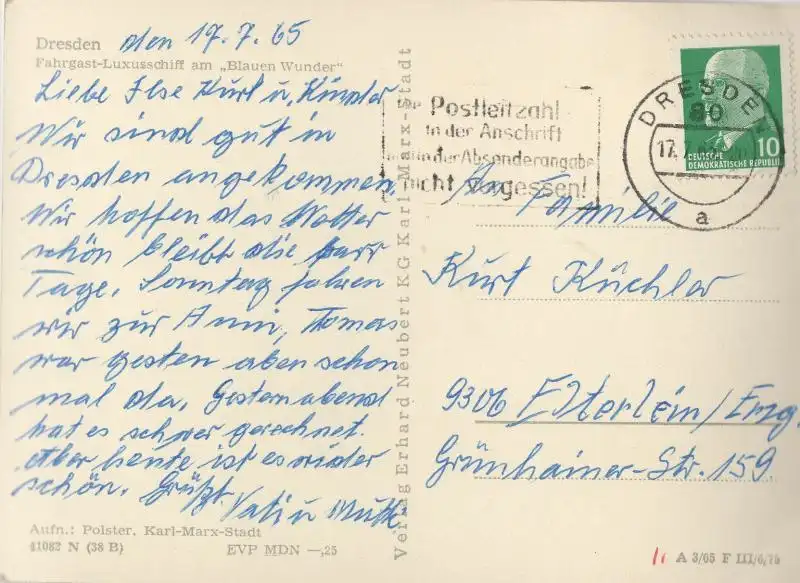 Dresden den 17.7.65
Fahrgast-Luxusschiff am „Blauen Wunder"
Liebe Ilse Kurt u. Kinder
Wir sind gut in
Dresden angekommen
Wir hoffen das Wetter
schön bleibt die paar
Tage. Sonntag fahren
wir zur Anni, Thomas
war gesten abenschon
mal da. Gestern abend
hat es schwer gerechnet.
Aber heute ist es wider
schön. Grüßt
Vati u Mutti
Aufn.: Polster, Karl-Marx-Stadt
41082 N (38 B) EVP MDN —,25
Verlag Erhard Neubert KG Karl-Marx-Stadt
Postleitzahl
in der Anschrift
und in der Absenderangabe
nicht vergessen!
DRESDEN
80
17.7.
a
10
DEUTSCHE
DEMOKRATISCHE REPUBLIK
An Familie
Kurt Küchler
9306 Elterlein/Erzg.
Grünhainer-Str. 159
A 3/65 F III/6/76